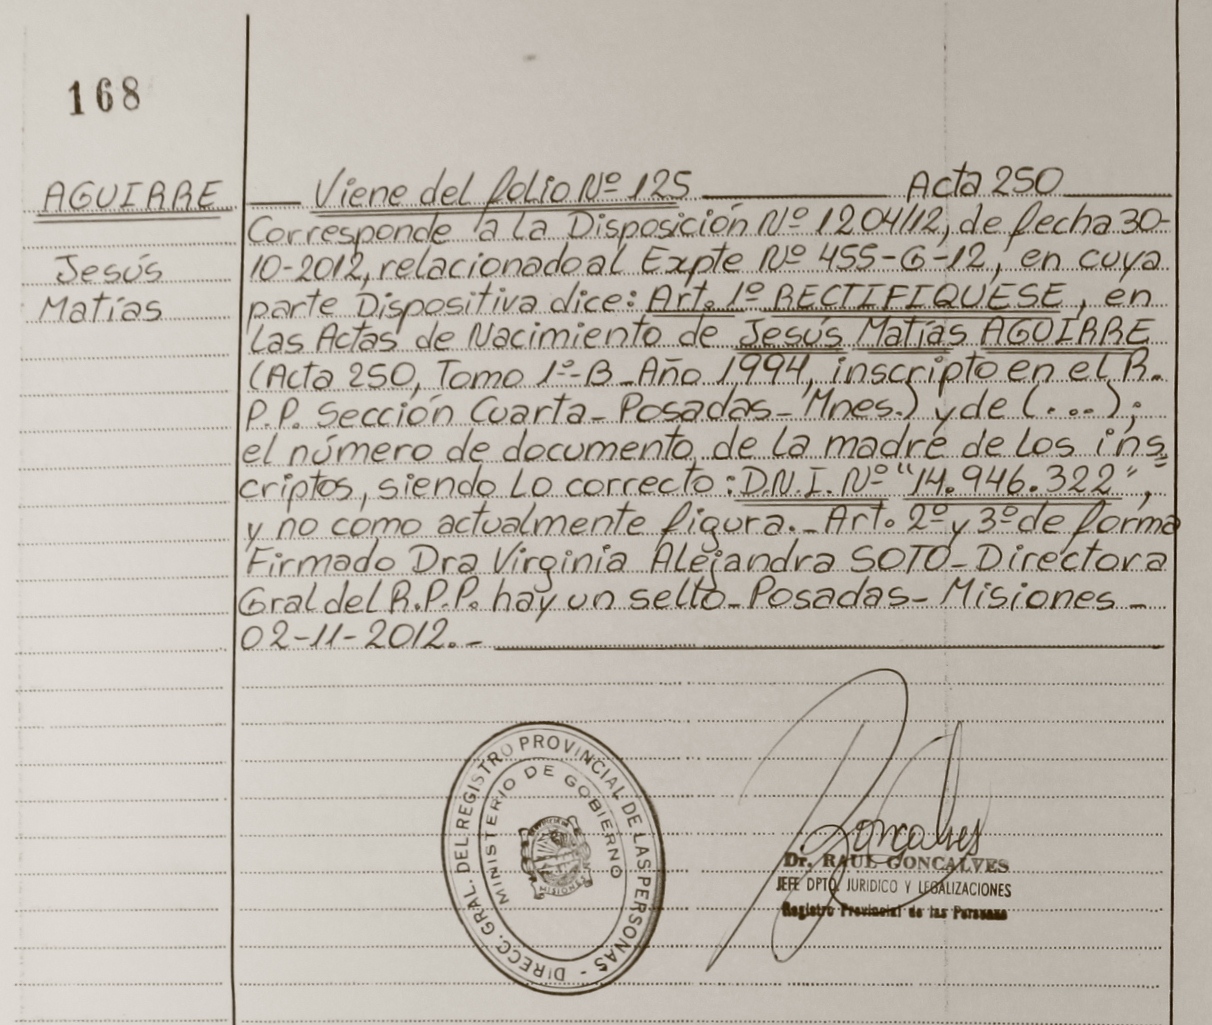 168
AGUIRRE
Jesús
Matías
Viene del folio Nº 125 Acta 250
Corresponde a la Disposición Nº 1204/12, de fecha 30-
10-2012, relacionado al Expte Nº 455-G-12, en cuya
parte Dispositiva dice: Art. 1º RECTIFIQUESE, en
las Actas de Nacimiento de Jesús Matías AGUIRRE
(Acta 250, Tomo 1º-B-Año 1994, inscripto en el R.
P.P. Sección Cuarta-Posadas-Mnes.) y de (...);
el número de documento, de la madre de los ins=
criptos, siendo lo correcto: D.N.I. Nº "14.946.322",
y no como actualmente figura.-Art. 2º y 3º de forma
Firmado Dra Virginia Alejandra SOTO-Directora
Gral del R.P.P. hay un sello-Posadas-Misiones-
02-11-2012.-
DIRECC. GRAL. DEL REGISTRO PROVINCIAL DE LAS PERSONAS -
MINISTERIO DE GOBIERNO
MISIONES
Goncalves
Dr. RAUL GONCALVES
JEFE DPTO. JURIDICO Y LEGALIZACIONES
Registro Provincial de las Personas